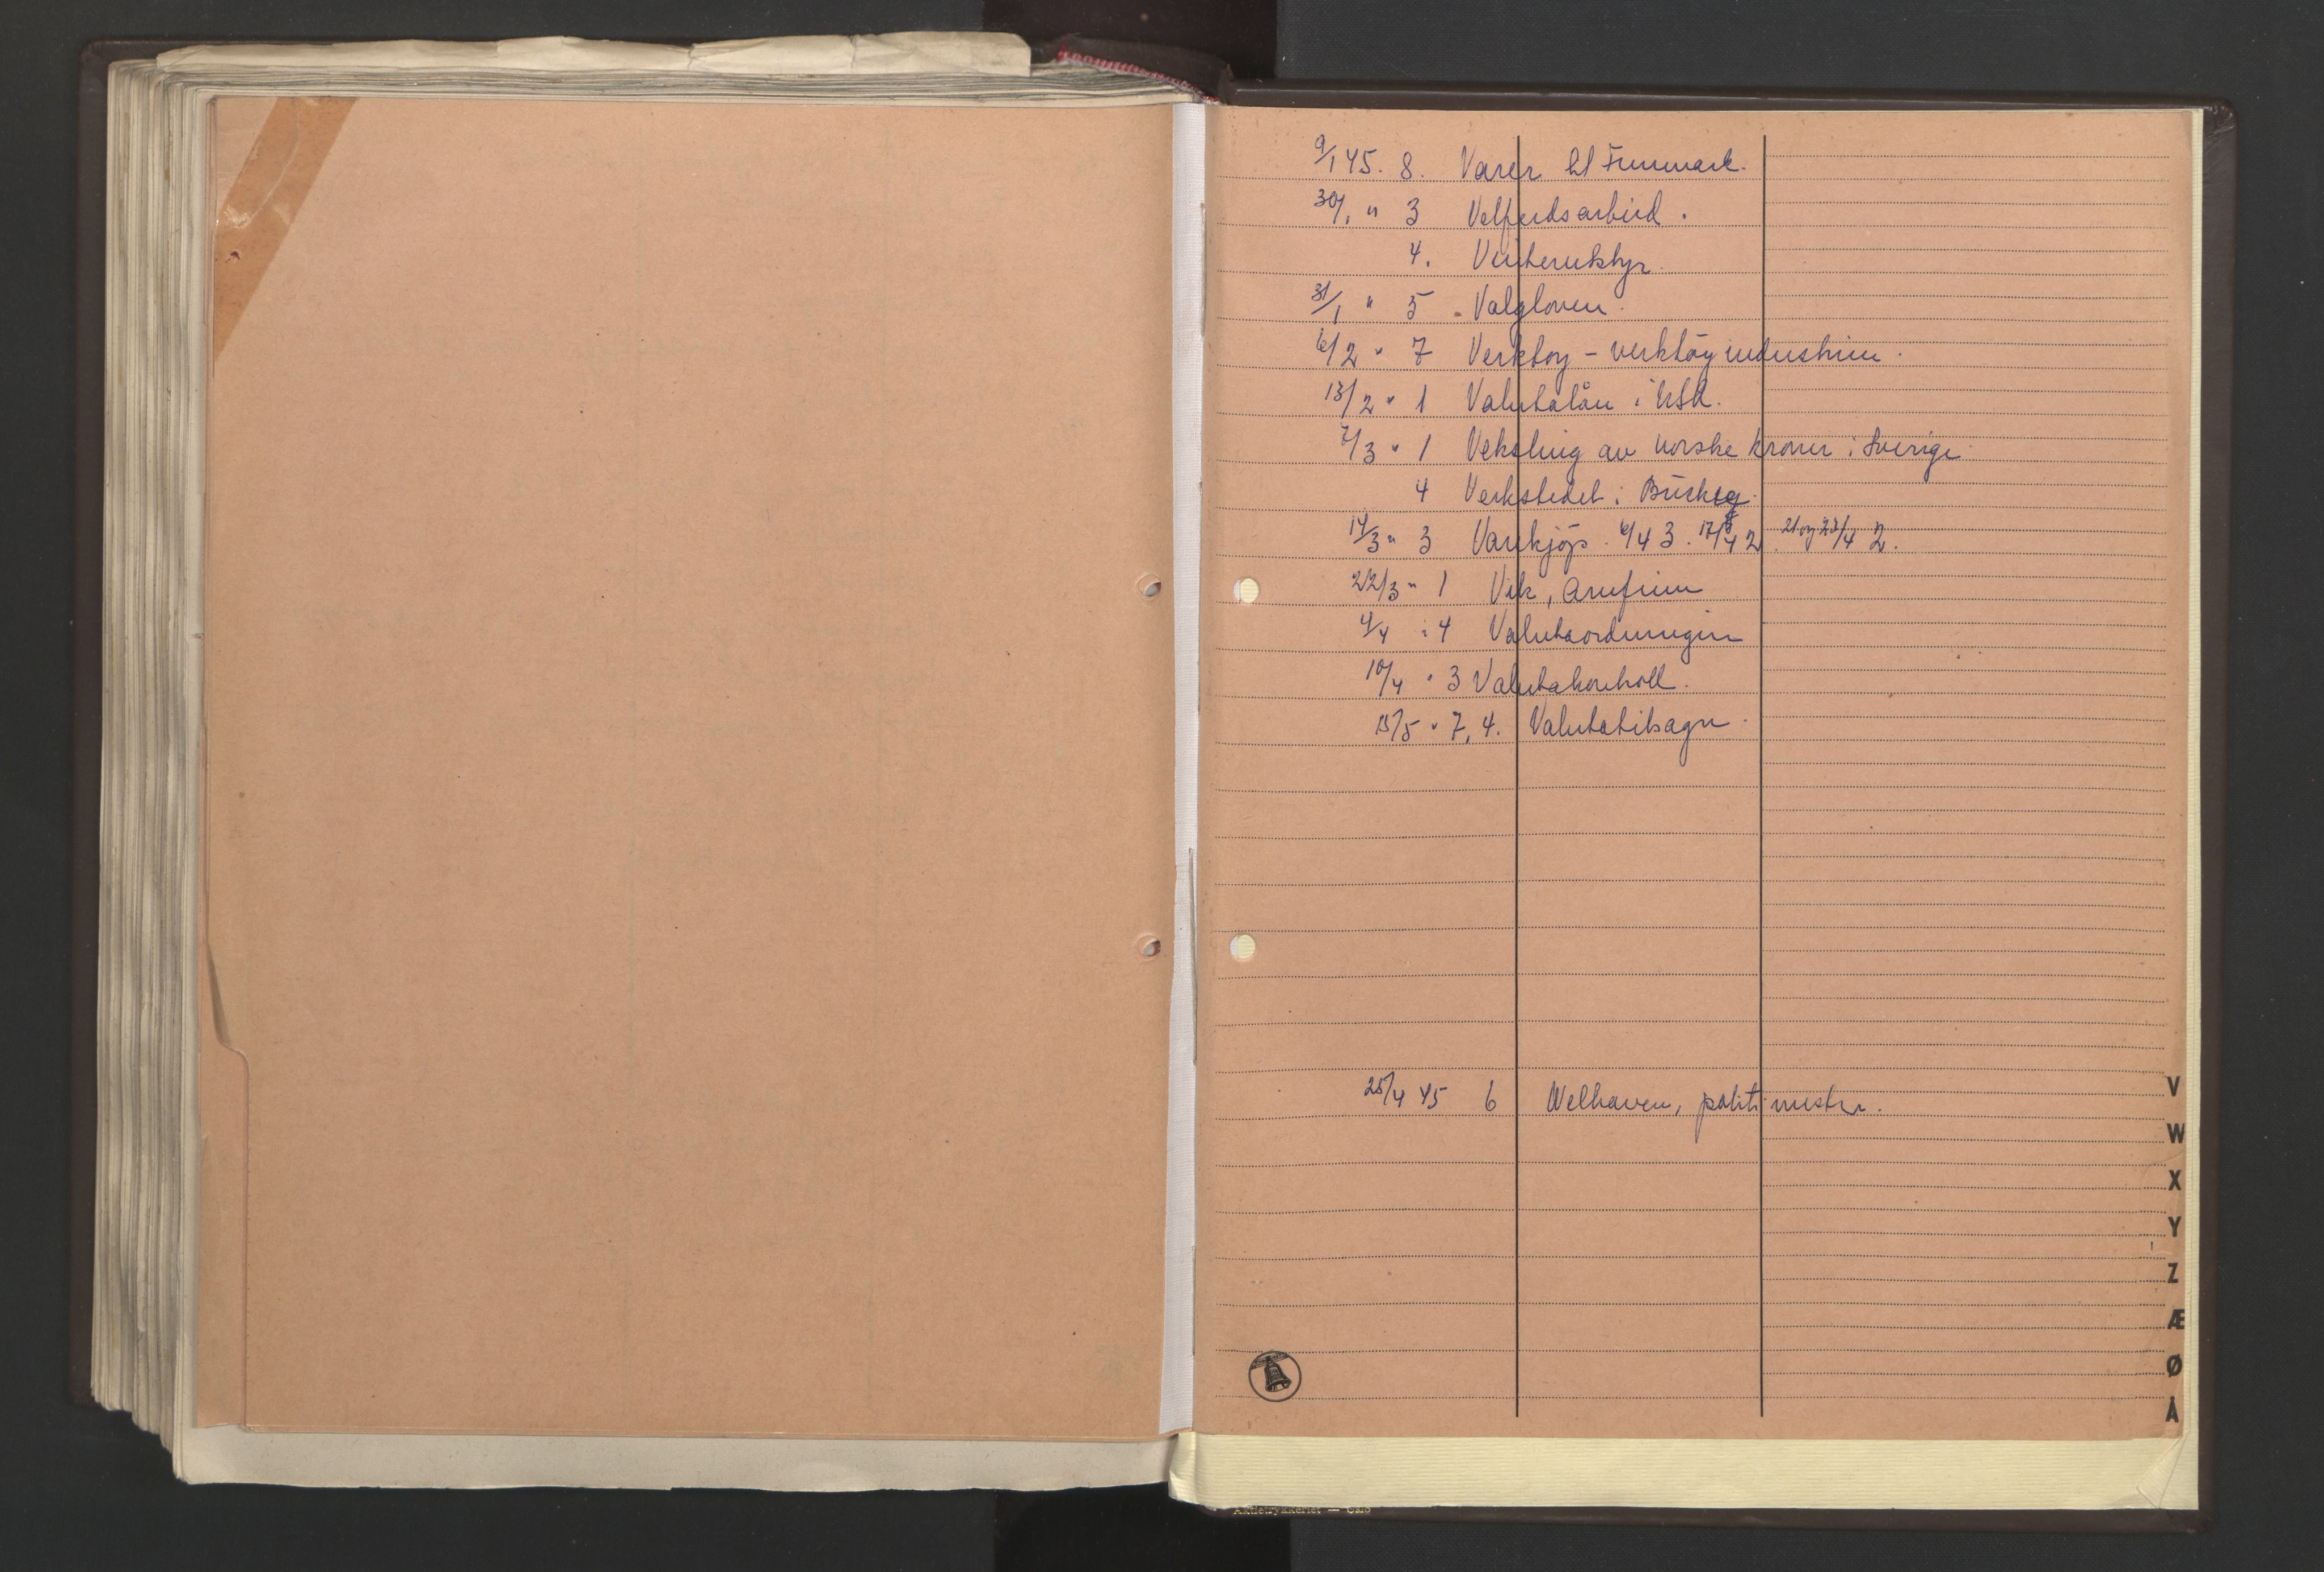 9/1 45. 8. Varer til Finnmark.
30/1 " 3 Velferdsarbeid.
4. Vinterutstyr.
31/1 " 5 Valgloven.
6/2 " 7 Verktøy - verktøyindustrien.
13/2 " 1 Valutalån i USA.
7/3 " 1 Veksling av norske kroner i Sverige.
4 Verkstedet i
14/3 " 3 Varekjøp. 6/4 3. 17/4 2. 21. og 23/4 2.
22/3 " 1 Vik, Arnfinn
4/4 : 4 Valutaordningen
10/4 " 3 Valutakontroll.
15/5 " 7, 4. Valutatilsagn.
25/4 45 6 Welhaven, politimester.
V
W
X
Y
Z
Æ
Ø
Å
Aktietrykkeriet — Oslo